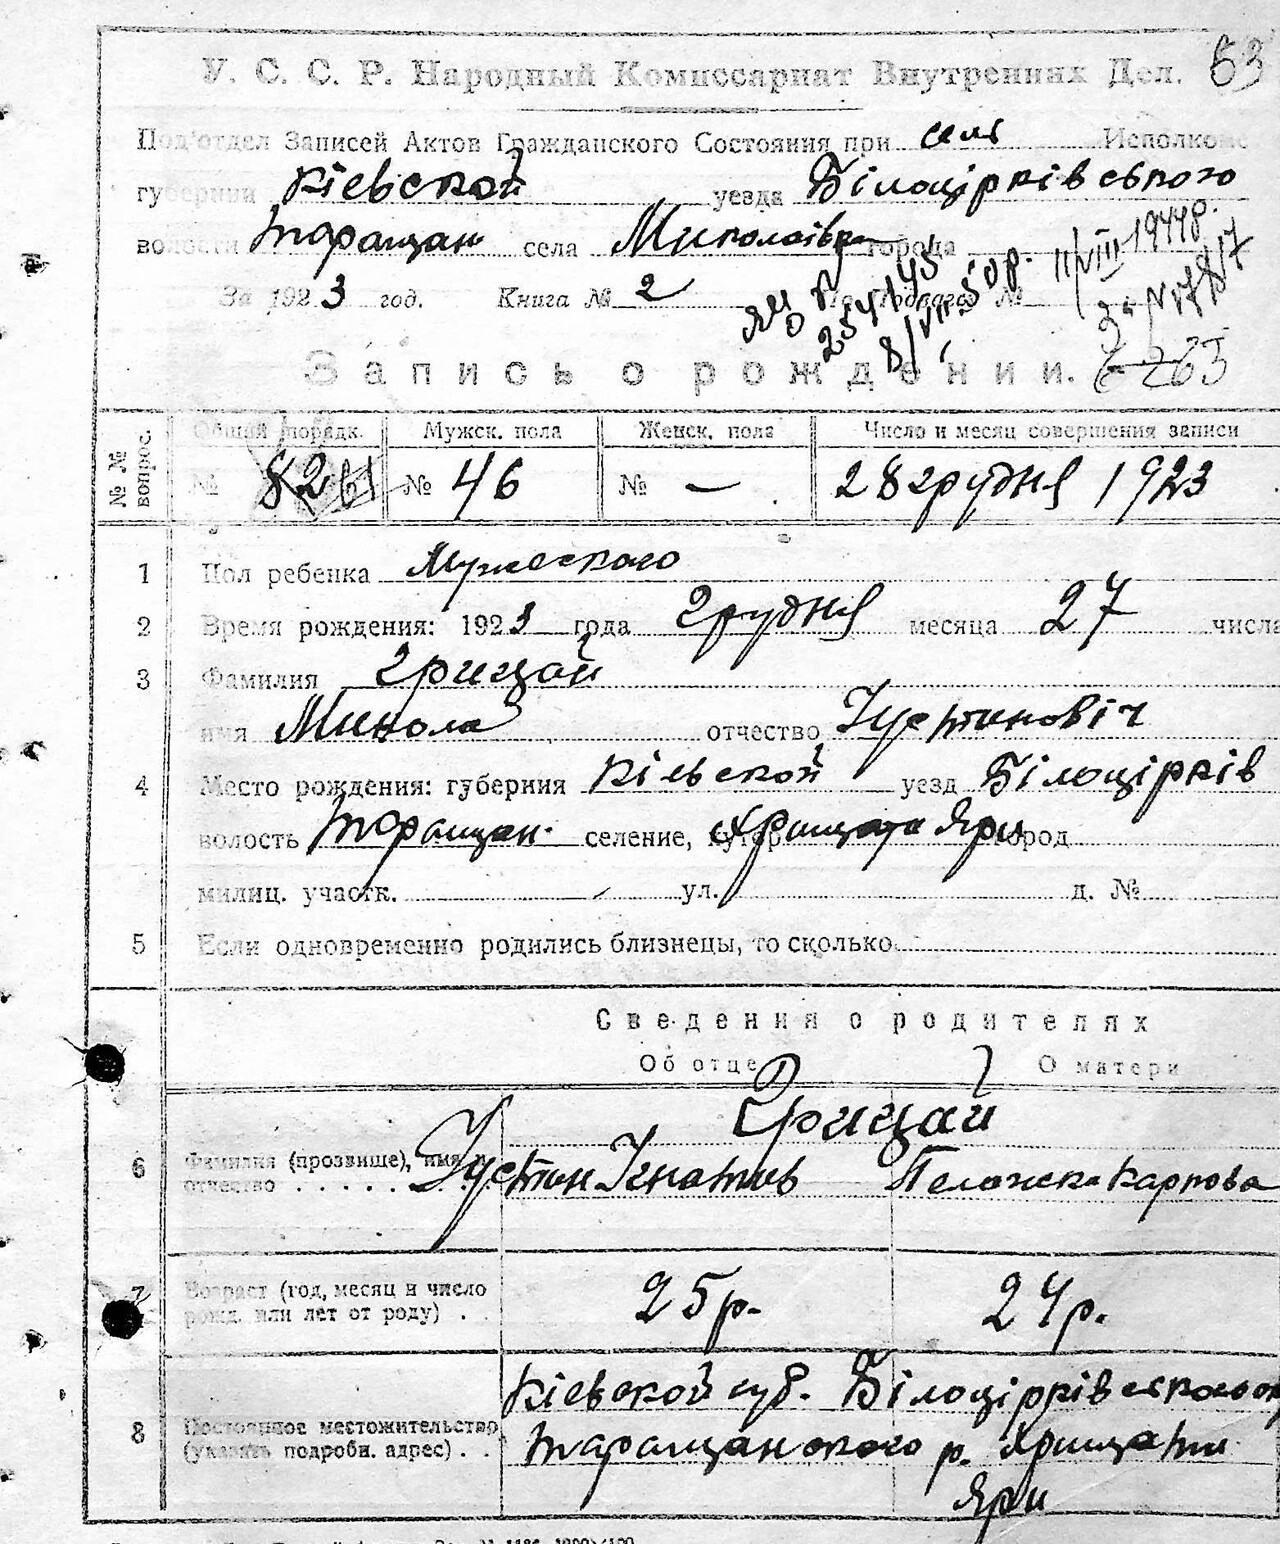 У. С. С. Р. Народный Комиссариат Внутренних Дел. 53
Под'отдел Записей Актов Гражданского Состояния при сель Исполкоме
губернии Кіевской уезда Білоцірківського
волости Таращан села Миколаівка города
За 1923 год. Книга № 2 №
11/VIII 1944 8/VII 50р.
Запись о рождении. 263
№ № вопрос. Общий порядк. Мужск. пола Женск. пола Число и месяц совершения записи
№ 82 61 № 46 № — 28 грудня 1923
1 Пол ребенка Мужеского
2 Время рождения: 1923 года грудня месяца 27 числа
3 Фамилия Грицай
имя Микола отчество Устиновіч
4 Место рождения: губерния Кіевской уезд Білоцірків
волость Таращан. селение, хутор Хрищата Яри город
милиц. участк. ул. д. №
5 Если одновременно родились близнецы, то сколько
Сведения о родителях
Об отце О матери
Грицай
6 Фамилия (прозвище), имя и
отчество . . . . . . Устин Ігнатів Пелажея Карпова
7 Возраст (год, месяц и число
рожд. или лет от роду) . . 25 р. 24 р.
Кіевской губ. Білоцірківського
8 Постоянное местожительство
(указать подробн. адрес) . . Таращанского р. Хрищати
Яри